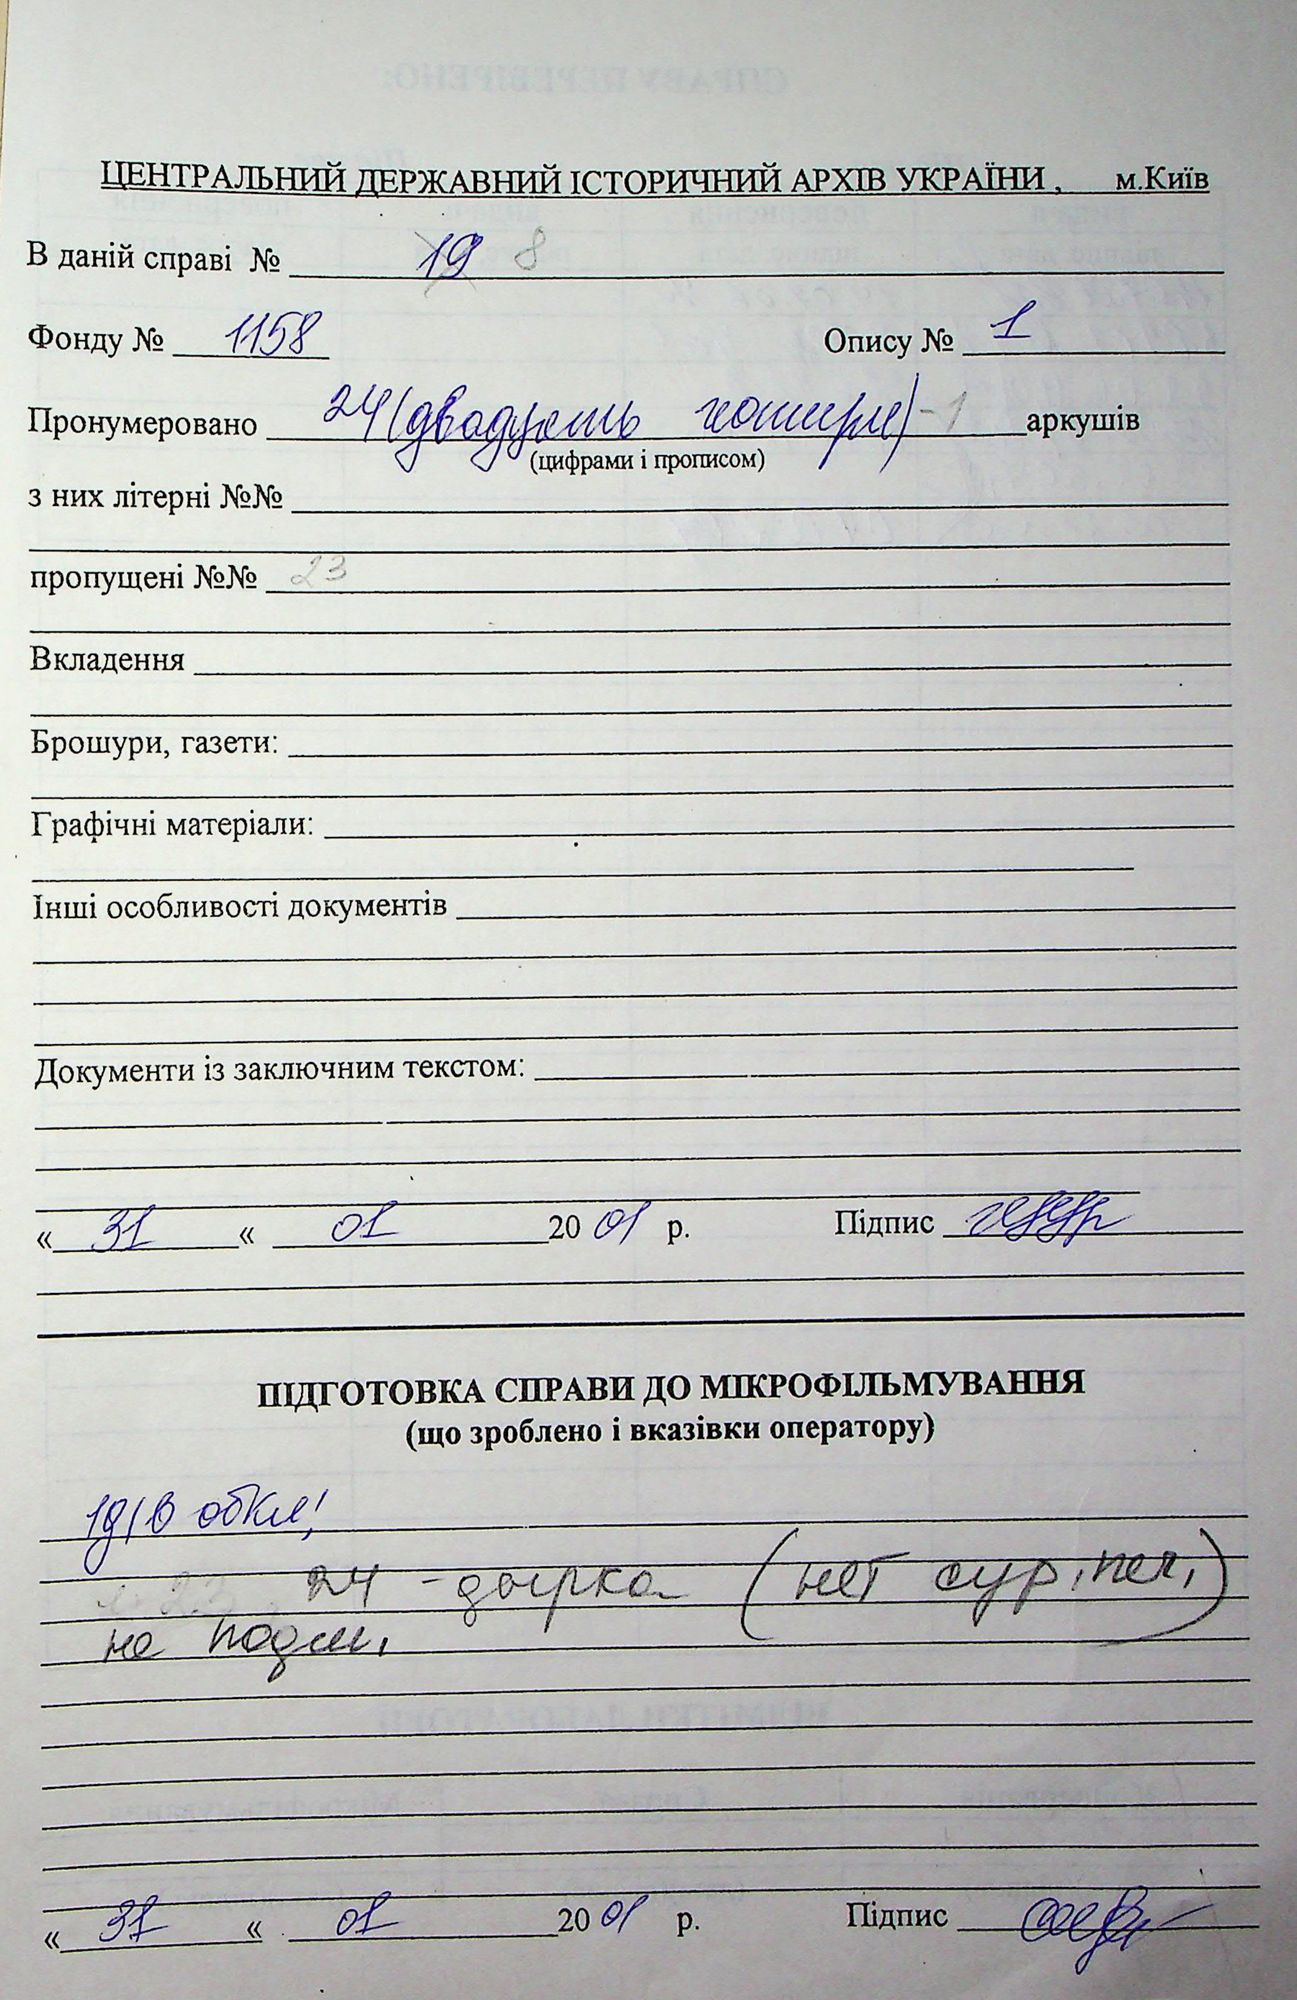 ЦЕНТРАЛЬНИЙ ДЕРЖАВНИЙ ІСТОРИЧНИЙ АРХІВ УКРАЇНИ , м.Київ
В даній справі № 19 8
Фонду № 1158 Опису № 1
Пронумеровано 24 (двадцять чотири) -1 аркушів
(цифрами і прописом)
з них літерні №№
пропущені №№ 23
Вкладення
Брошури, газети:
Графічні матеріали:
Інші особливості документів
Документи із заключним текстом:
« 31 « 01 20 01 р. Підпис
ПІДГОТОВКА СПРАВИ ДО МІКРОФІЛЬМУВАННЯ
(що зроблено і вказівки оператору)
в обкл!
л. 23, 24 - дырка (нет сур. печ.)
не подш.
« 31 « 01 20 01 р. Підпис